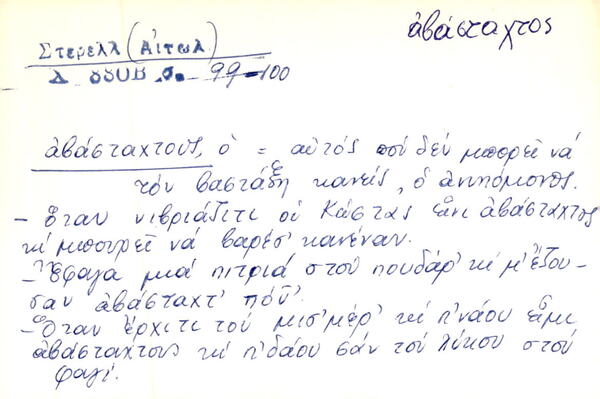 ἀβάσταχτος
Στερελλ (Αἰτωλ)
Λ 880Β σ. 99-100
ἀβάσταχτους, ὁ = αὐτός πού δέν μπορεῖ νά
τόν βαστάξη κανείς, ὁ ἀνυπόμονος.
- Ὅταν νιβριάζιτι οὑ Κώστας εἶνι ἀβάσταχτος
κί μπουρεῖ νά βαρέσ' κανέναν.
- Ἔφαγα μιά πιτριά στού πουδάρ' κί μ' ἔζου-
σαν ἀβάσταχτ' πόν'.
- Ὅταν ἔρχιτι τού μισ'μέρ' κί π'νάου εἶμι
ἀβάσταχτους κί π'δάου σάν τού λύκου στού
φαγί.